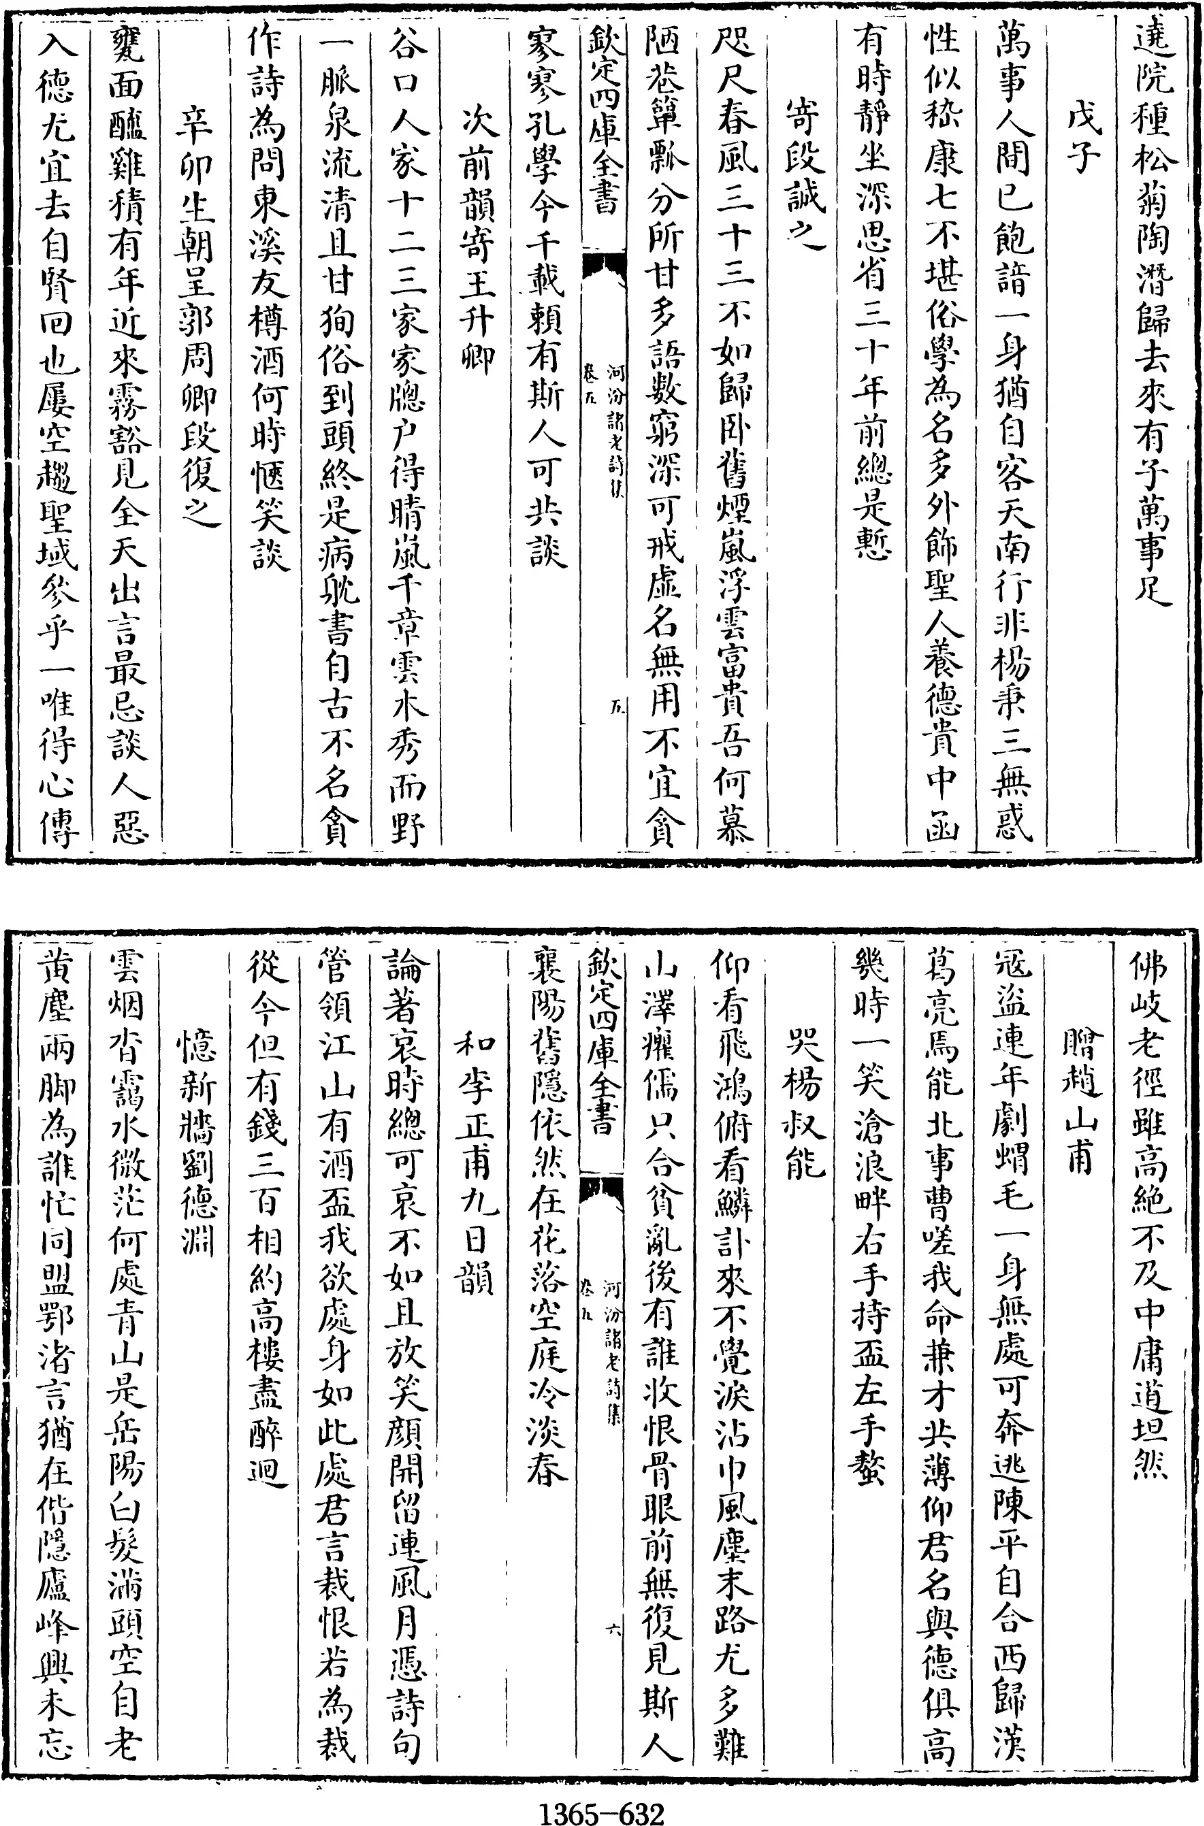 遶院種松菊陶潛歸去來有子萬事足
戊子
萬事人間已飽諳一身猶自客天南行非楊秉三無惑
性似嵇康七不堪俗學為名多外飾聖人養德貴中函
有時靜坐深思省三十年前總是慙
寄段誠之
咫尺春風三十三不如歸卧舊煙嵐浮雲富貴吾何慕
陋巷簞瓢分所甘多語數窮深可戒虛名無用不宜貪
欽定四庫全書
河汾諸老詩集
卷五
五
寥寥孔學今千載賴有斯人可共談
次前韻寄王升卿
谷口人家十二三家家牕户得晴嵐千章雲木秀而野
一脈泉流清且甘狥俗到頭終是病躭書自古不名貪
作詩為問東溪友樽酒何時愜笑談
辛卯生朝呈郭周卿段復之
甕面醯雞積有年近來霧豁見全天出言最忌談人惡
入德尤宜去自賢回也屢空趨聖域參乎一唯得心傳
佛岐老徑雖高絶不及中庸道坦然
贈趙山甫
冦盜連年劇蝟毛一身無處可奔逃陳平自合西歸漢
葛亮焉能北事曹嗟我命兼才共薄仰君名與德俱高
幾時一笑滄浪畔右手持盃左手螯
哭楊叔能
仰看飛鴻俯看鱗訃來不覺淚沾巾風塵末路尤多難
山澤癯儒只合貧亂後有誰收恨骨眼前無復見斯人
欽定四庫全書
河汾諸老詩集
卷五
六
襄陽舊隱依然在花落空庭冷淡春
和李正甫九日韻
論著哀時總可哀不如且放笑顔開留連風月憑詩句
管領江山有酒盃我欲處身如此處君言裁恨若為裁
從今但有錢三百相約高樓盡醉迴
憶新牆劉德淵
雲烟杳靄水微茫何處青山是岳陽白髮滿頭空自老
黄塵兩脚為誰忙同盟鄂渚言猶在偕隱廬峰興未忘
1365-632